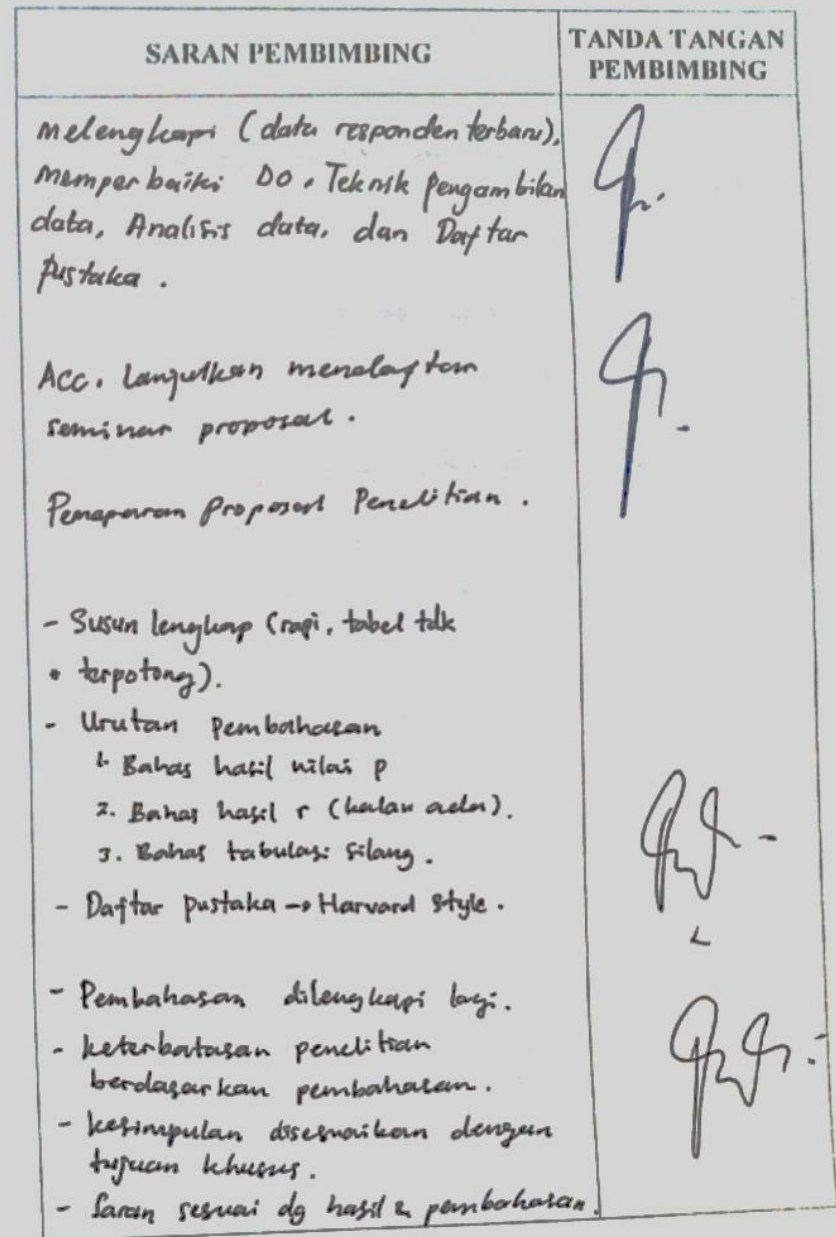 SARAN PEMBIMBING
TANDA TANGAN
PEMBIMBING
Melengkapi (data responden terbaru),
Memperbaiki DO, Teknik pengambilan
data, Analisis data, dan Daftar
pustaka.
Acc. Lanjutkan mendaftar
seminar proposal.
Pemaparan Proposal Penelitian.
- Susun lengkap (rapi, tabel tdk
• terpotong).
- Urutan pembahasan
1. Bahas hasil nilai p
2. Bahas hasil r (kalau ada).
3. Bahas tabulasi silang.
- Daftar pustaka → Harvard style.
- Pembahasan dilengkapi lagi.
- keterbatasan penelitian
berdasarkan pembahasan.
- kesimpulan disesuaikan dengan
tujuan khusus.
- Saran sesuai dg hasil & pembahasan.